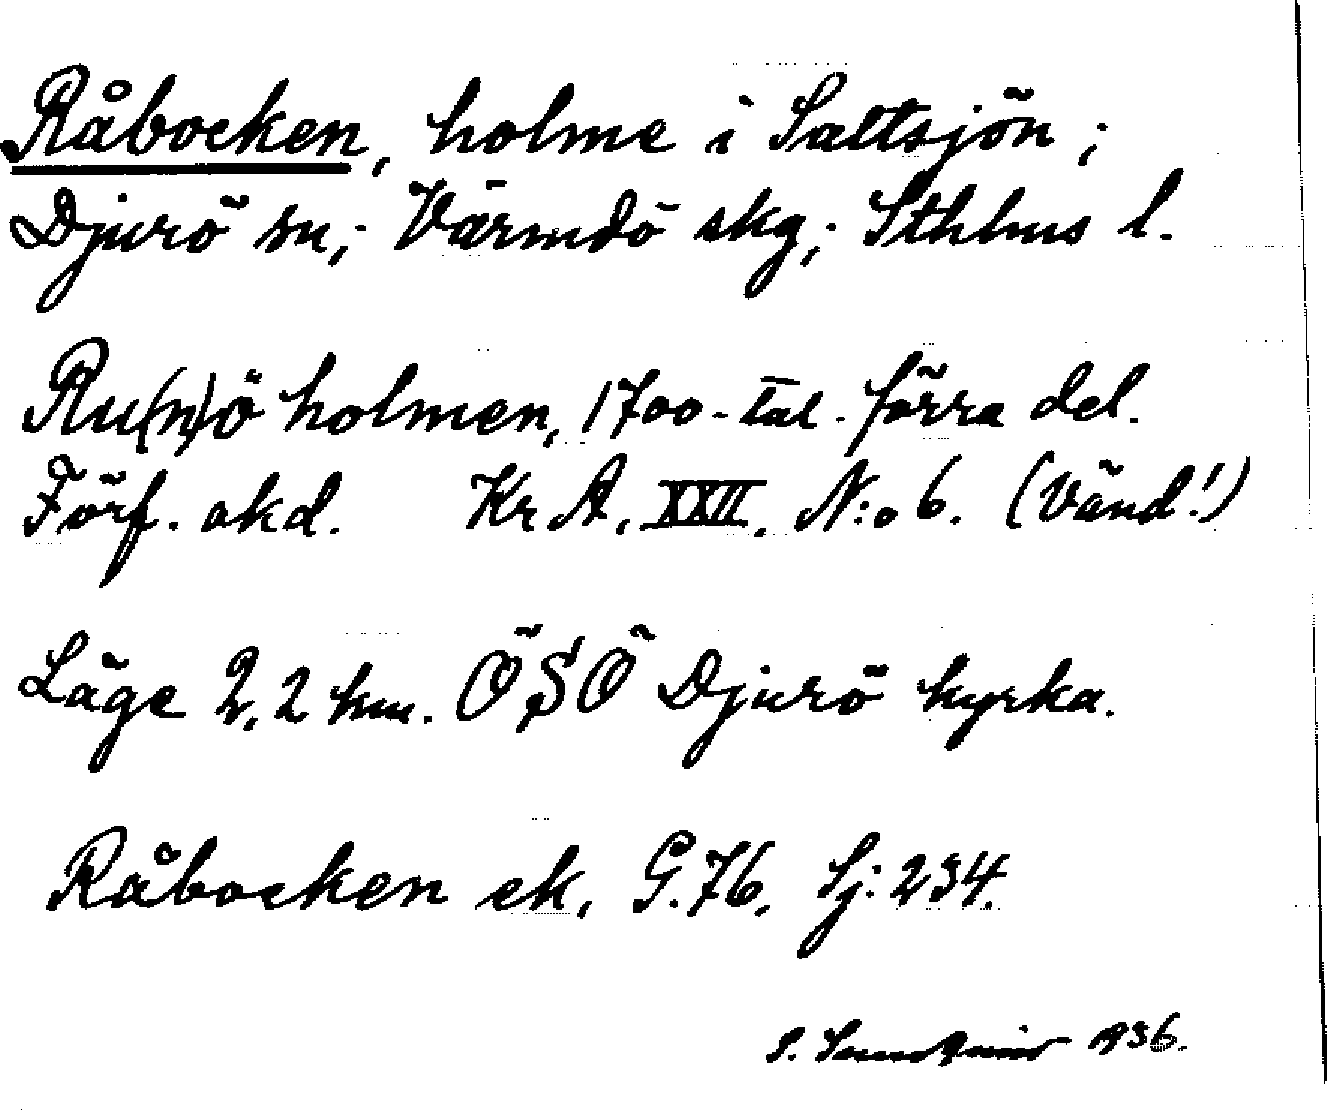 Råbocken, holme i Saltsjön;
Djurö sn; Värmdö skg; Sthlms l.
Ru(n)ö holmen, 1700-tal. förra del.
Förf. okd. Kr A, XXII, N:o 6. (Vänd!)
Läge 2,2 km. ÖSÖ Djurö kyrka.
Råbocken ek, G. 76, Sj: 234.
S. 1936.